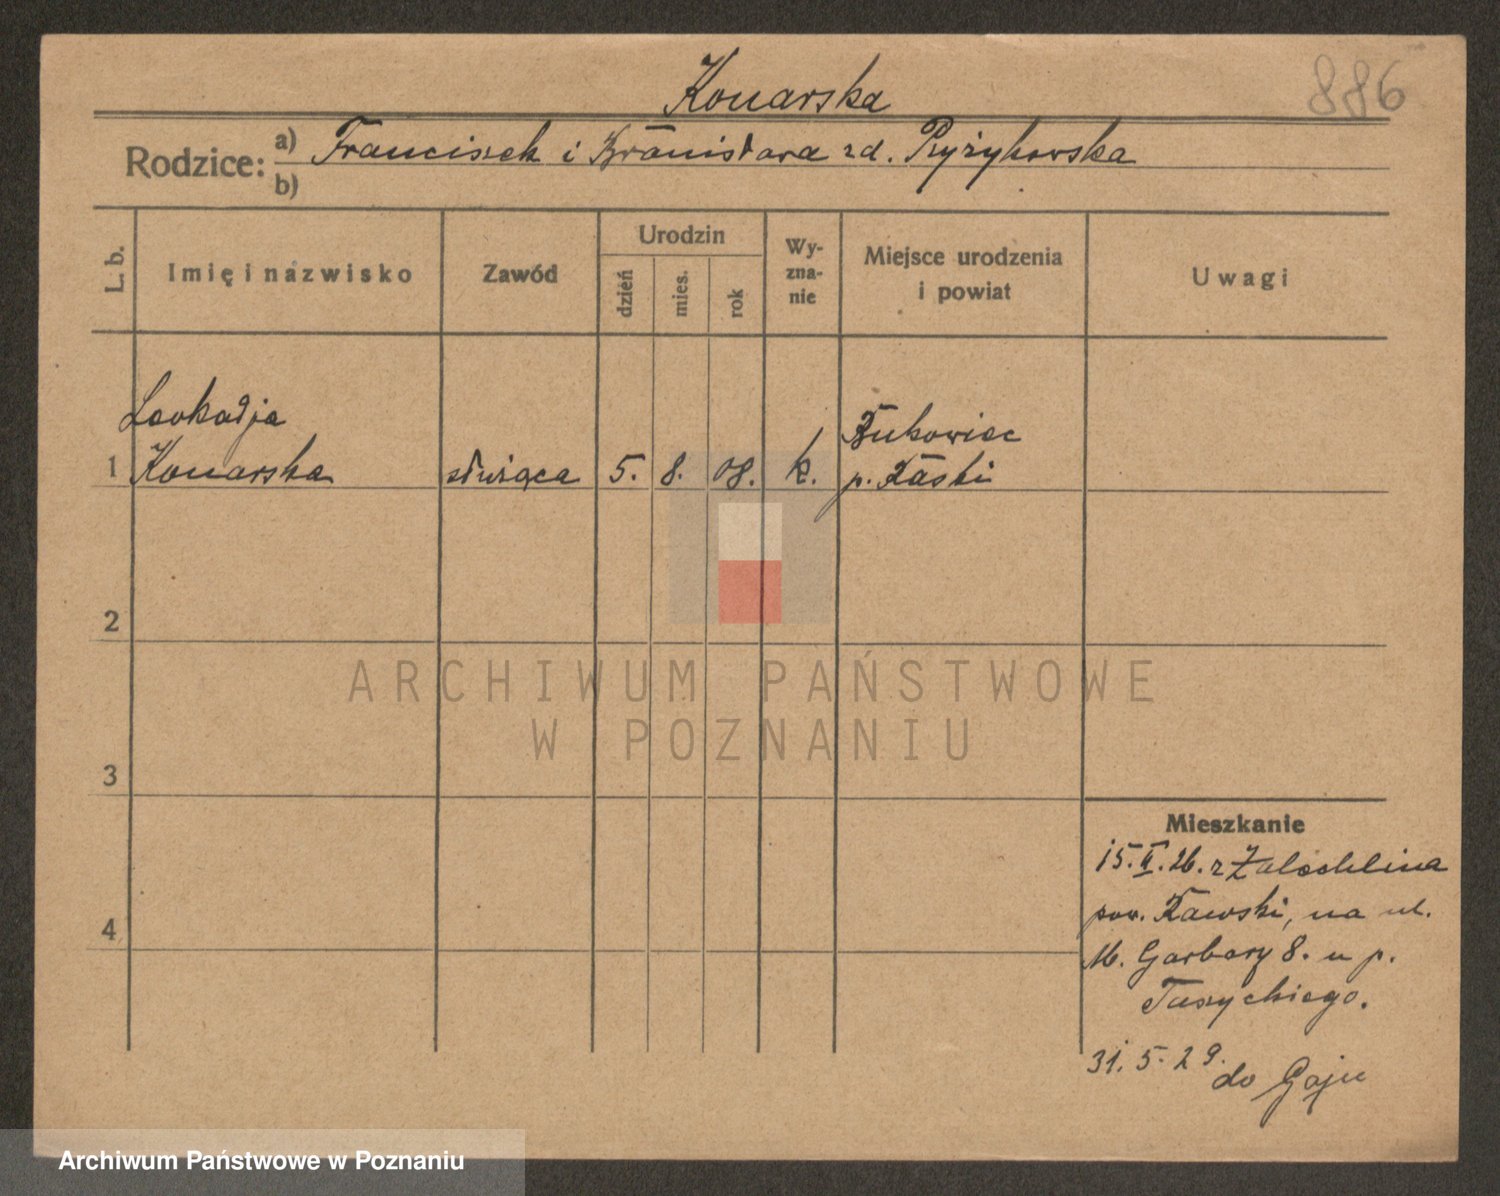 Konarska
886
Rodzice: a) Franciszek i Bronisława zd. Pyżykowska
b)
L. b. Imię i nazwisko Zawód Urodzin dzień mies. rok Wyznanie Miejsce urodzenia i powiat Uwagi
Leokadja Bukowiec
1 Konarska służąca 5. 8. 08. k. p. Łaski
2
ARCHIWUM PAŃSTWOWE
W POZNANIU
3
Mieszkanie
15. II. 26. z
pow. na ul.
4
M. Garbary 8. u p.
31. 5. 29. do Gaju
Archiwum Państwowe w Poznaniu